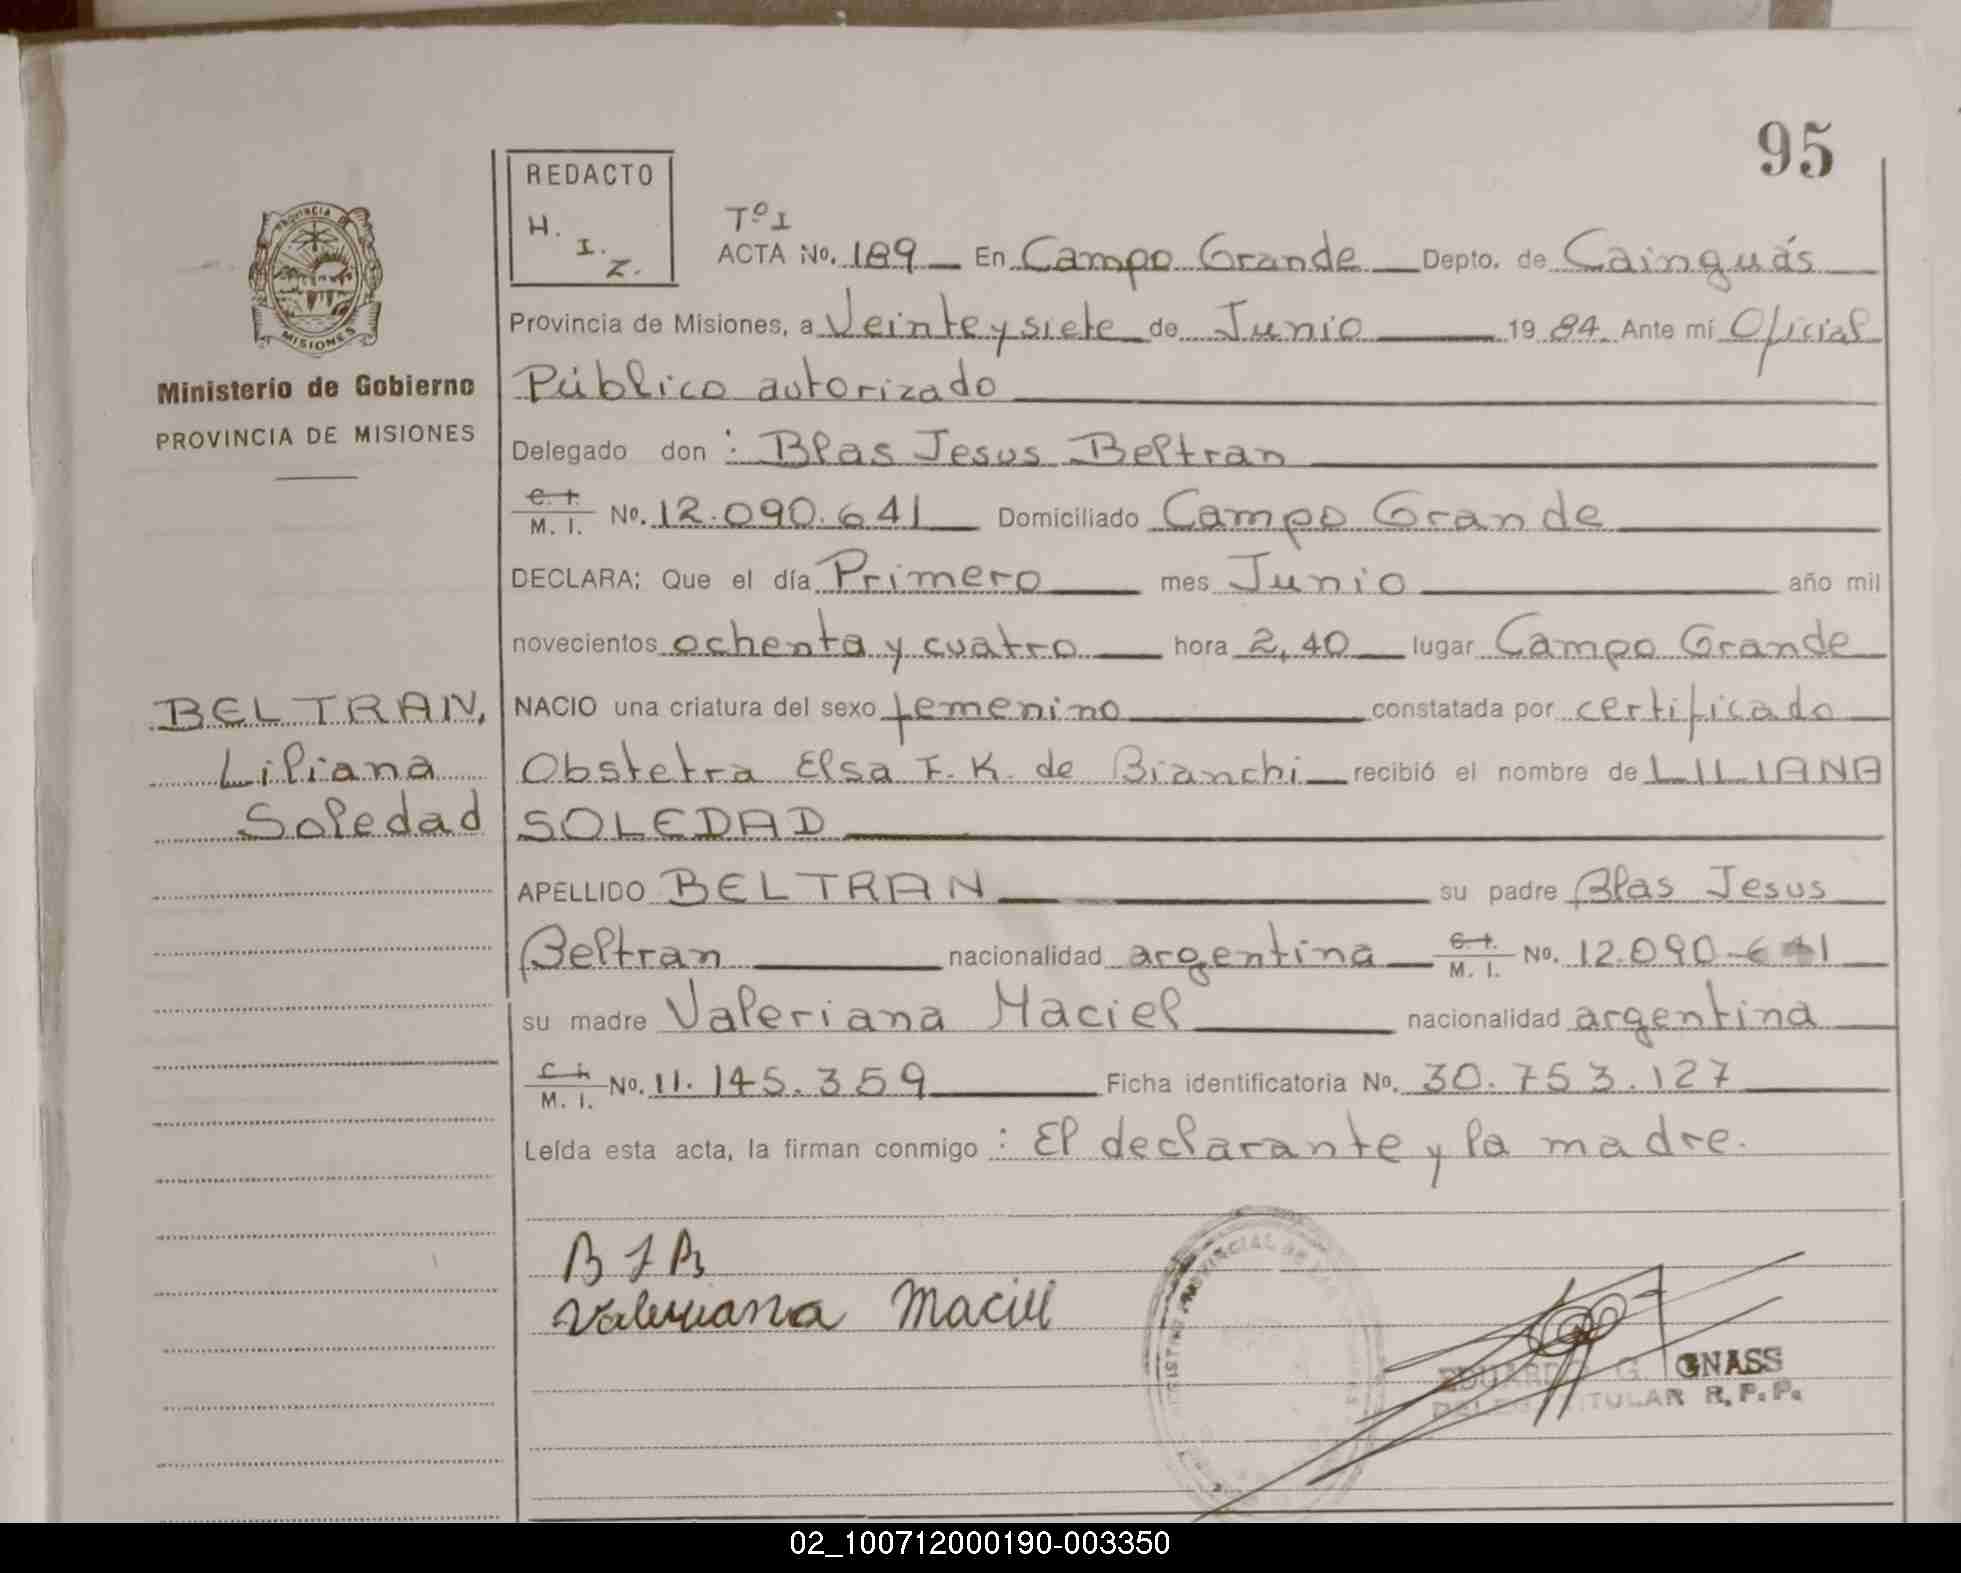 95
REDACTO
H. I. Z.
Tº I
ACTA No. 189 En Campo Grande Depto. de Cainguás
Provincia de Misiones, a Veinte y siete de Junio 1984. Ante mí Oficial
Público autorizado
Delegado don : Blas Jesus Beltran
C. I. / M. I. No. 12.090.641 Domiciliado Campo Grande
DECLARA: Que el día Primero mes Junio año mil
novecientos ochenta y cuatro hora 2,40 lugar Campo Grande
NACIO una criatura del sexo femenino constatada por certificado
Obstetra Elsa F. K. de Bianchi recibió el nombre de LILIANA
SOLEDAD
APELLIDO BELTRAN su padre Blas Jesus
Beltran nacionalidad argentina C. I. / M. I. No. 12.090.641
su madre Valeriana Maciel nacionalidad argentina
C. I. / M. I. No. 11.145.359 Ficha identificatoria No. 30.753.127
Leída esta acta, la firman conmigo : El declarante y la madre.
B J B
Valeriana Maciel
EDUARDO G. GNASS
TITULAR R.P.P.
PROVINCIA DE MISIONES
Ministerio de Gobierno
PROVINCIA DE MISIONES
BELTRAN,
Liliana
Soledad
02_100712000190-003350